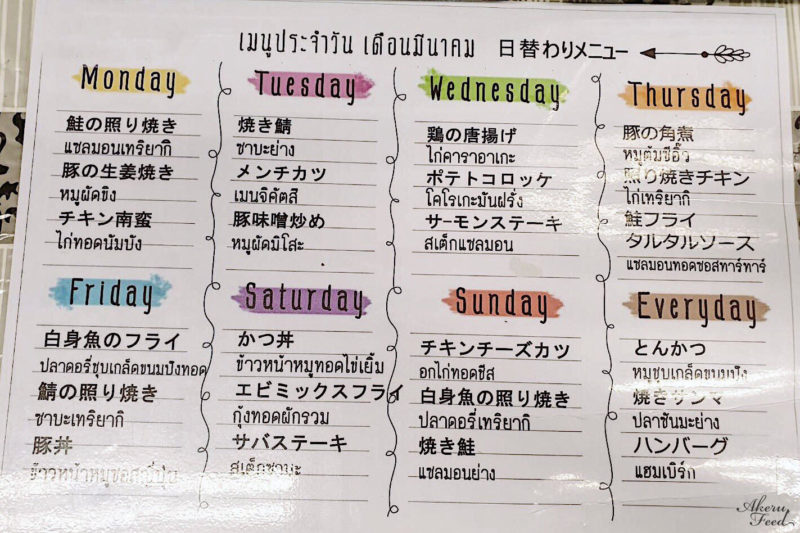 เมนูประจำวัน เดือนมีนาคม 日替わりメニュー
Monday
鮭の照り焼き
แซลมอนเทริยากิ
豚の生姜焼き
หมูผัดขิง
チキン南蛮
ไก่ทอดนัมบัง
Tuesday
焼き鯖
ซาบะย่าง
メンチカツ
เมนจิคัตสึ
豚味噌炒め
หมูผัดมิโสะ
Wednesday
鶏の唐揚げ
ไก่คาราอาเกะ
ポテトコロッケ
โคโรเกะมันฝรั่ง
サーモンステーキ
สเต็กแซลมอน
Thursday
豚の角煮
หมูต้มซีอิ๊ว
照り焼きチキン
ไก่เทริยากิ
鮭フライ
タルタルソース
แซลมอนทอดซอสทาร์ทาร์
Friday
白身魚のフライ
ปลาดอรี่ชุบเกล็ดขนมปังทอด
鯖の照り焼き
ซาบะเทริยากิ
豚丼
ข้าวหน้าหมูซอสญี่ปุ่น
Saturday
かつ丼
ข้าวหน้าหมูทอดไข่เยิ้ม
エビミックスフライ
กุ้งทอดผักรวม
サバステーキ
สเต็กซาบะ
Sunday
チキンチーズカツ
อกไก่ทอดชีส
白身魚の照り焼き
ปลาดอรี่เทริยากิ
焼き鮭
แซลมอนย่าง
Everyday
とんかつ
หมูชุบเกล็ดขนมปัง
焼きサンマ
ปลาซันมะย่าง
ハンバーグ
แฮมเบิร์ก
Akeru
Feed